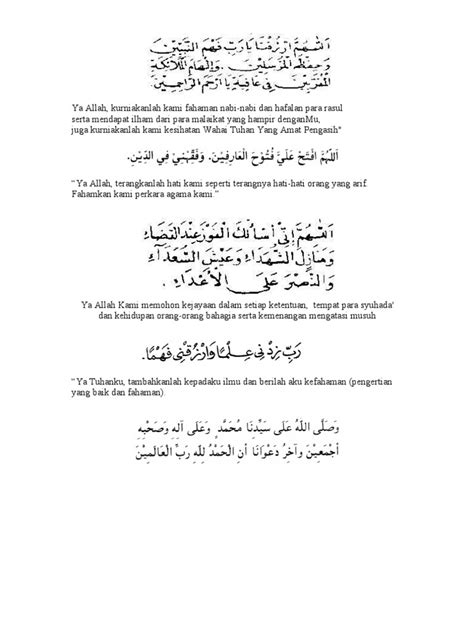 اَللّٰهُمَّ ارْزُقْنَا يَا رَبِّ فَهْمَ النَّبِيِّيْنَ
وَحِفْظَ الْمُرْسَلِيْنَ. وَإِلْهَامَ الْمَلَائِكَةِ
الْمُقَرَّبِيْنَ فِي عَافِيَةٍ يَا أَرْحَمَ الرَّاحِمِيْنَ
Ya Allah, kurniakanlah kami fahaman nabi-nabi dan hafalan para rasul
serta mendapat ilham dari para malaikat yang hampir denganMu,
juga kurniakanlah kami kesihatan Wahai Tuhan Yang Amat Pengasih"
اَللّٰهُمَّ افْتَحْ عَلَيَّ فُتُوْحَ الْعَارِفِيْنَ. وَفَقِّهْنِيْ فِي الدِّيْنِ.
“Ya Allah, terangkanlah hati kami seperti terangnya hati-hati orang yang arif.
Fahamkan kami perkara agama kami.”
اَللّٰهُمَّ إِنِّيْ أَسْأَلُكَ الْفَوْزَ عِنْدَ الْقَضَاءِ
وَمَنَازِلَ الشُّهَدَاءِ وَعَيْشَ السُّعَدَاءِ
وَالنَّصْرَ عَلَى الْأَعْدَاءِ .
Ya Allah Kami memohon kejayaan dalam setiap ketentuan, tempat para syuhada'
dan kehidupan orang-orang bahagia serta kemenangan mengatasi musuh
رَبِّ زِدْنِيْ عِلْمًا وَارْزُقْنِيْ فَهْمًا.
“Ya Tuhanku, tambahkanlah kepadaku ilmu dan berilah aku kefahaman (pengertian
yang baik dan fahaman).
وَصَلَّى اللهُ عَلَى سَيِّدِنَا مُحَمَّدٍ وَعَلَى آلِهِ وَصَحْبِهِ
أَجْمَعِيْنَ وَآخِرُ دَعْوَانَا أَنِ الْحَمْدُ لِلّٰهِ رَبِّ الْعَالَمِيْنَ